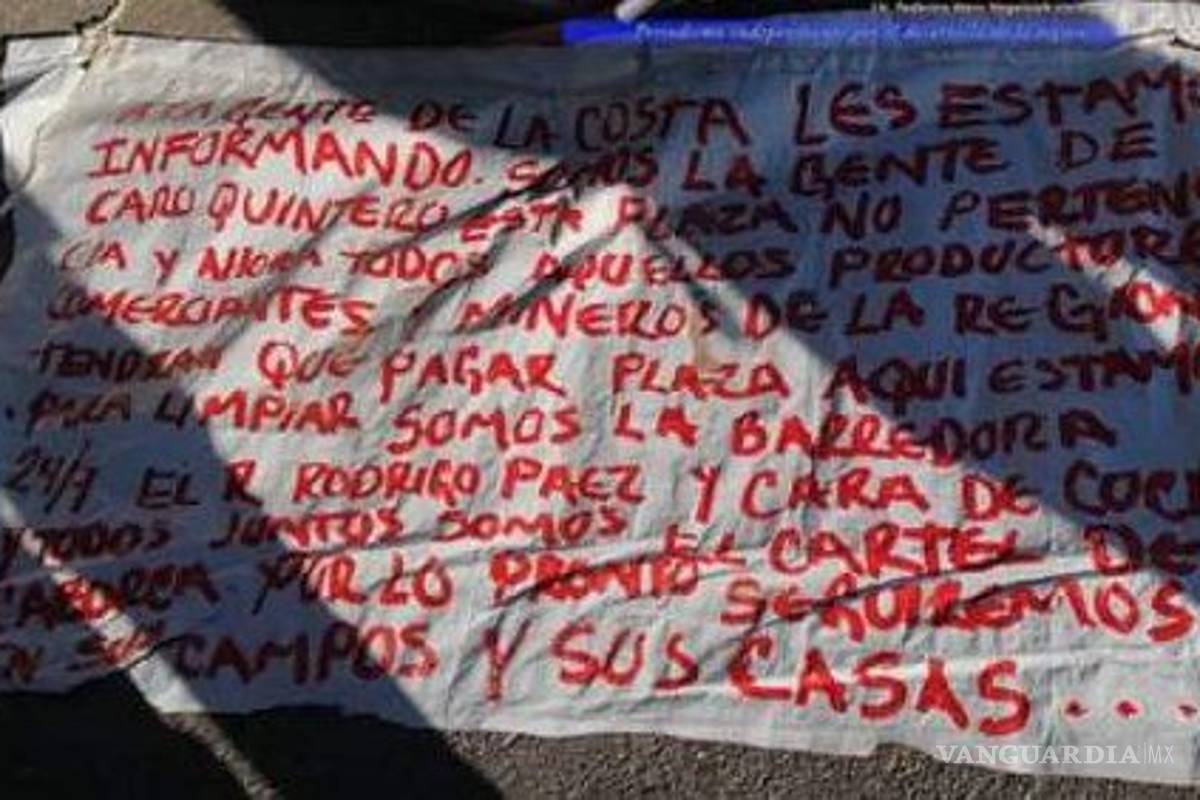 GENTE DE LA COSTA LES ESTAM
INFORMANDO. SOMOS LA GENTE DE
CARO QUINTERO ESTA PLAZA NO PERTENE
CIA Y AHORA TODOS AQUELLOS PRODUCTORE
COMERCIANTES Y MINEROS DE LA REGION
TENDRAN QUE PAGAR PLAZA AQUI ESTAMO
. PARA LIMPIAR SOMOS LA BARREDORA
24/7 EL R RODRIGO PAEZ Y CARA DE COCH
Y TODOS JUNTOS SOMOS EL CARTEL DE
CABORCA Y POR LO PRONTO SEGUIREMOS
EN SUS CAMPOS Y SUS CASAS....
VANGUARDIA|MX